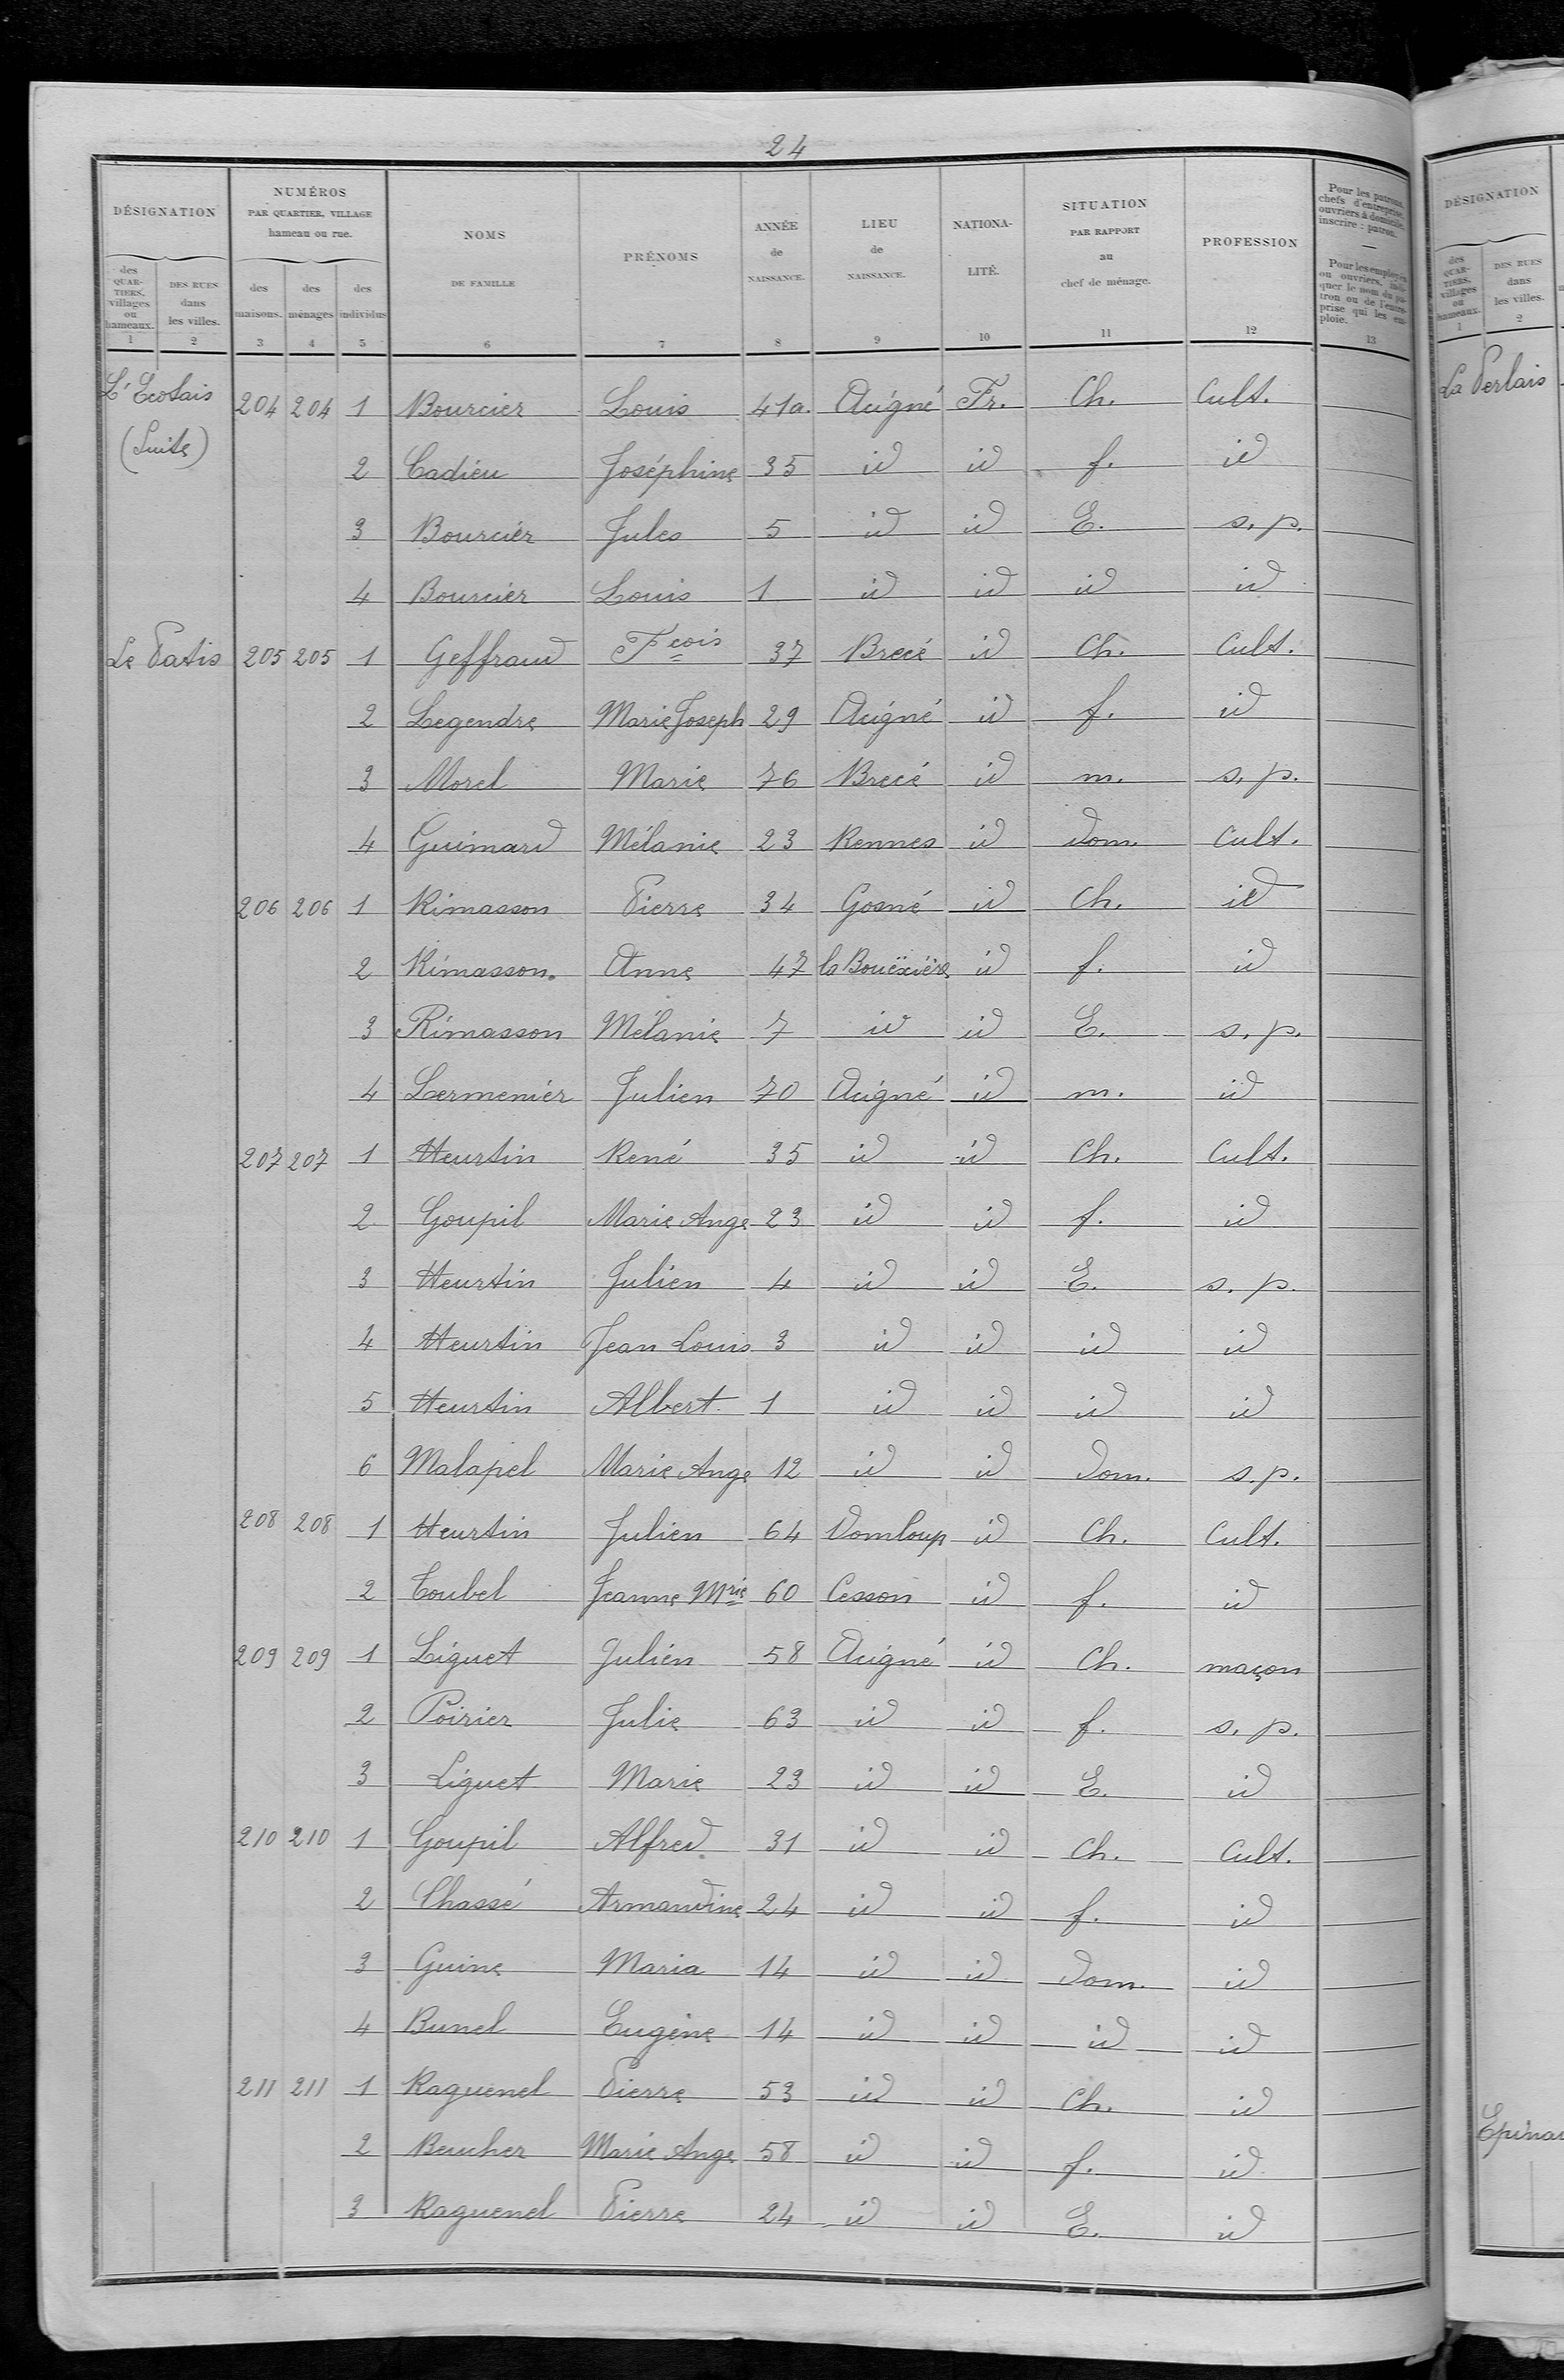 24
DÉSIGNATION | NUMÉROS PAR QUARTIER, VILLAGE hameau ou rue. | NOMS DE FAMILLE | PRÉNOMS | ANNÉE de NAISSANCE. | LIEU de NAISSANCE. | NATIONA-LITÉ. | SITUATION PAR RAPPORT au chef de ménage. | PROFESSION | Pour les patrons, chefs d'entreprise, ouvriers à domicile, inscrire : patron. — Pour les employés ou ouvriers, indiquer le nom du patron ou de l'entreprise qui les emploie.
des QUAR-TIERS, villages ou hameaux. | DES RUES dans les villes. | des maisons. | des ménages | des individus
1 | 2 | 3 | 4 | 5 | 6 | 7 | 8 | 9 | 10 | 11 | 12 | 13
L'Ecotais | 204 | 204 | 1 | Bourcier | Louis | 41a. | Acigné | Fr. | Ch. | Cult.
(Suite) | 2 | Cadieu | Joséphine | 35 | id | id | f. | id
3 | Bourcier | Jules | 5 | id | id | E. | s. p.
4 | Bourcier | Louis | 1 | id | id | id | id
Le Patis | 205 | 205 | 1 | Geffraud | Fçois | 37 | Brecé | id | Ch. | Cult.
2 | Legendre | Marie Joseph | 29 | Acigné | id | f. | id
3 | Morel | Marie | 76 | Brecé | id | m. | s. p.
4 | Guimard | Mélanie | 23 | Rennes | id | dom. | Cult.
206 | 206 | 1 | Rimasson | Pierre | 34 | Gosné | id | Ch. | id
2 | Rimasson | Anne | 47 | la Bouëxière | id | f. | id
3 | Rimasson | Mélanie | 7 | id | id | E. | s. p.
4 | Lermenier | Julien | 70 | Acigné | id | m. | id
207 | 207 | 1 | Heurtin | René | 35 | id | id | Ch. | Cult.
2 | Goupil | Marie Ange | 23 | id | id | f. | id
3 | Heurtin | Julien | 4 | id | id | E. | s. p.
4 | Heurtin | Jean Louis | 3 | id | id | id | id
5 | Heurtin | Albert | 1 | id | id | id | id
6 | Malapel | Marie Ange | 12 | id | id | dom. | s. p.
208 | 208 | 1 | Heurtin | Julien | 64 | Domloup | id | Ch. | Cult.
2 | Coubel | Jeanne Mrie | 60 | Cesson | id | f. | id
209 | 209 | 1 | Liguet | Julien | 58 | Acigné | id | Ch. | maçon
2 | Poirier | Julie | 63 | id | id | f. | s. p.
3 | Liguet | Marie | 23 | id | id | E. | id
210 | 210 | 1 | Goupil | Alfred | 31 | id | id | Ch. | Cult.
2 | Chassé | Armandine | 24 | id | id | f. | id
3 | Guine | Maria | 14 | id | id | dom. | id
4 | Bunel | Eugène | 14 | id | id | id | id
211 | 211 | 1 | Raguenel | Pierre | 53 | id | id | Ch. | id
2 | Beucher | Marie Ange | 58 | id | id | f. | id
3 | Raguenel | Pierre | 24 | id | id | E. | id
DÉSIGNATION
des QUAR-TIERS, villages ou hameaux. | DES RUES dans les villes.
1 | 2
La Perlais